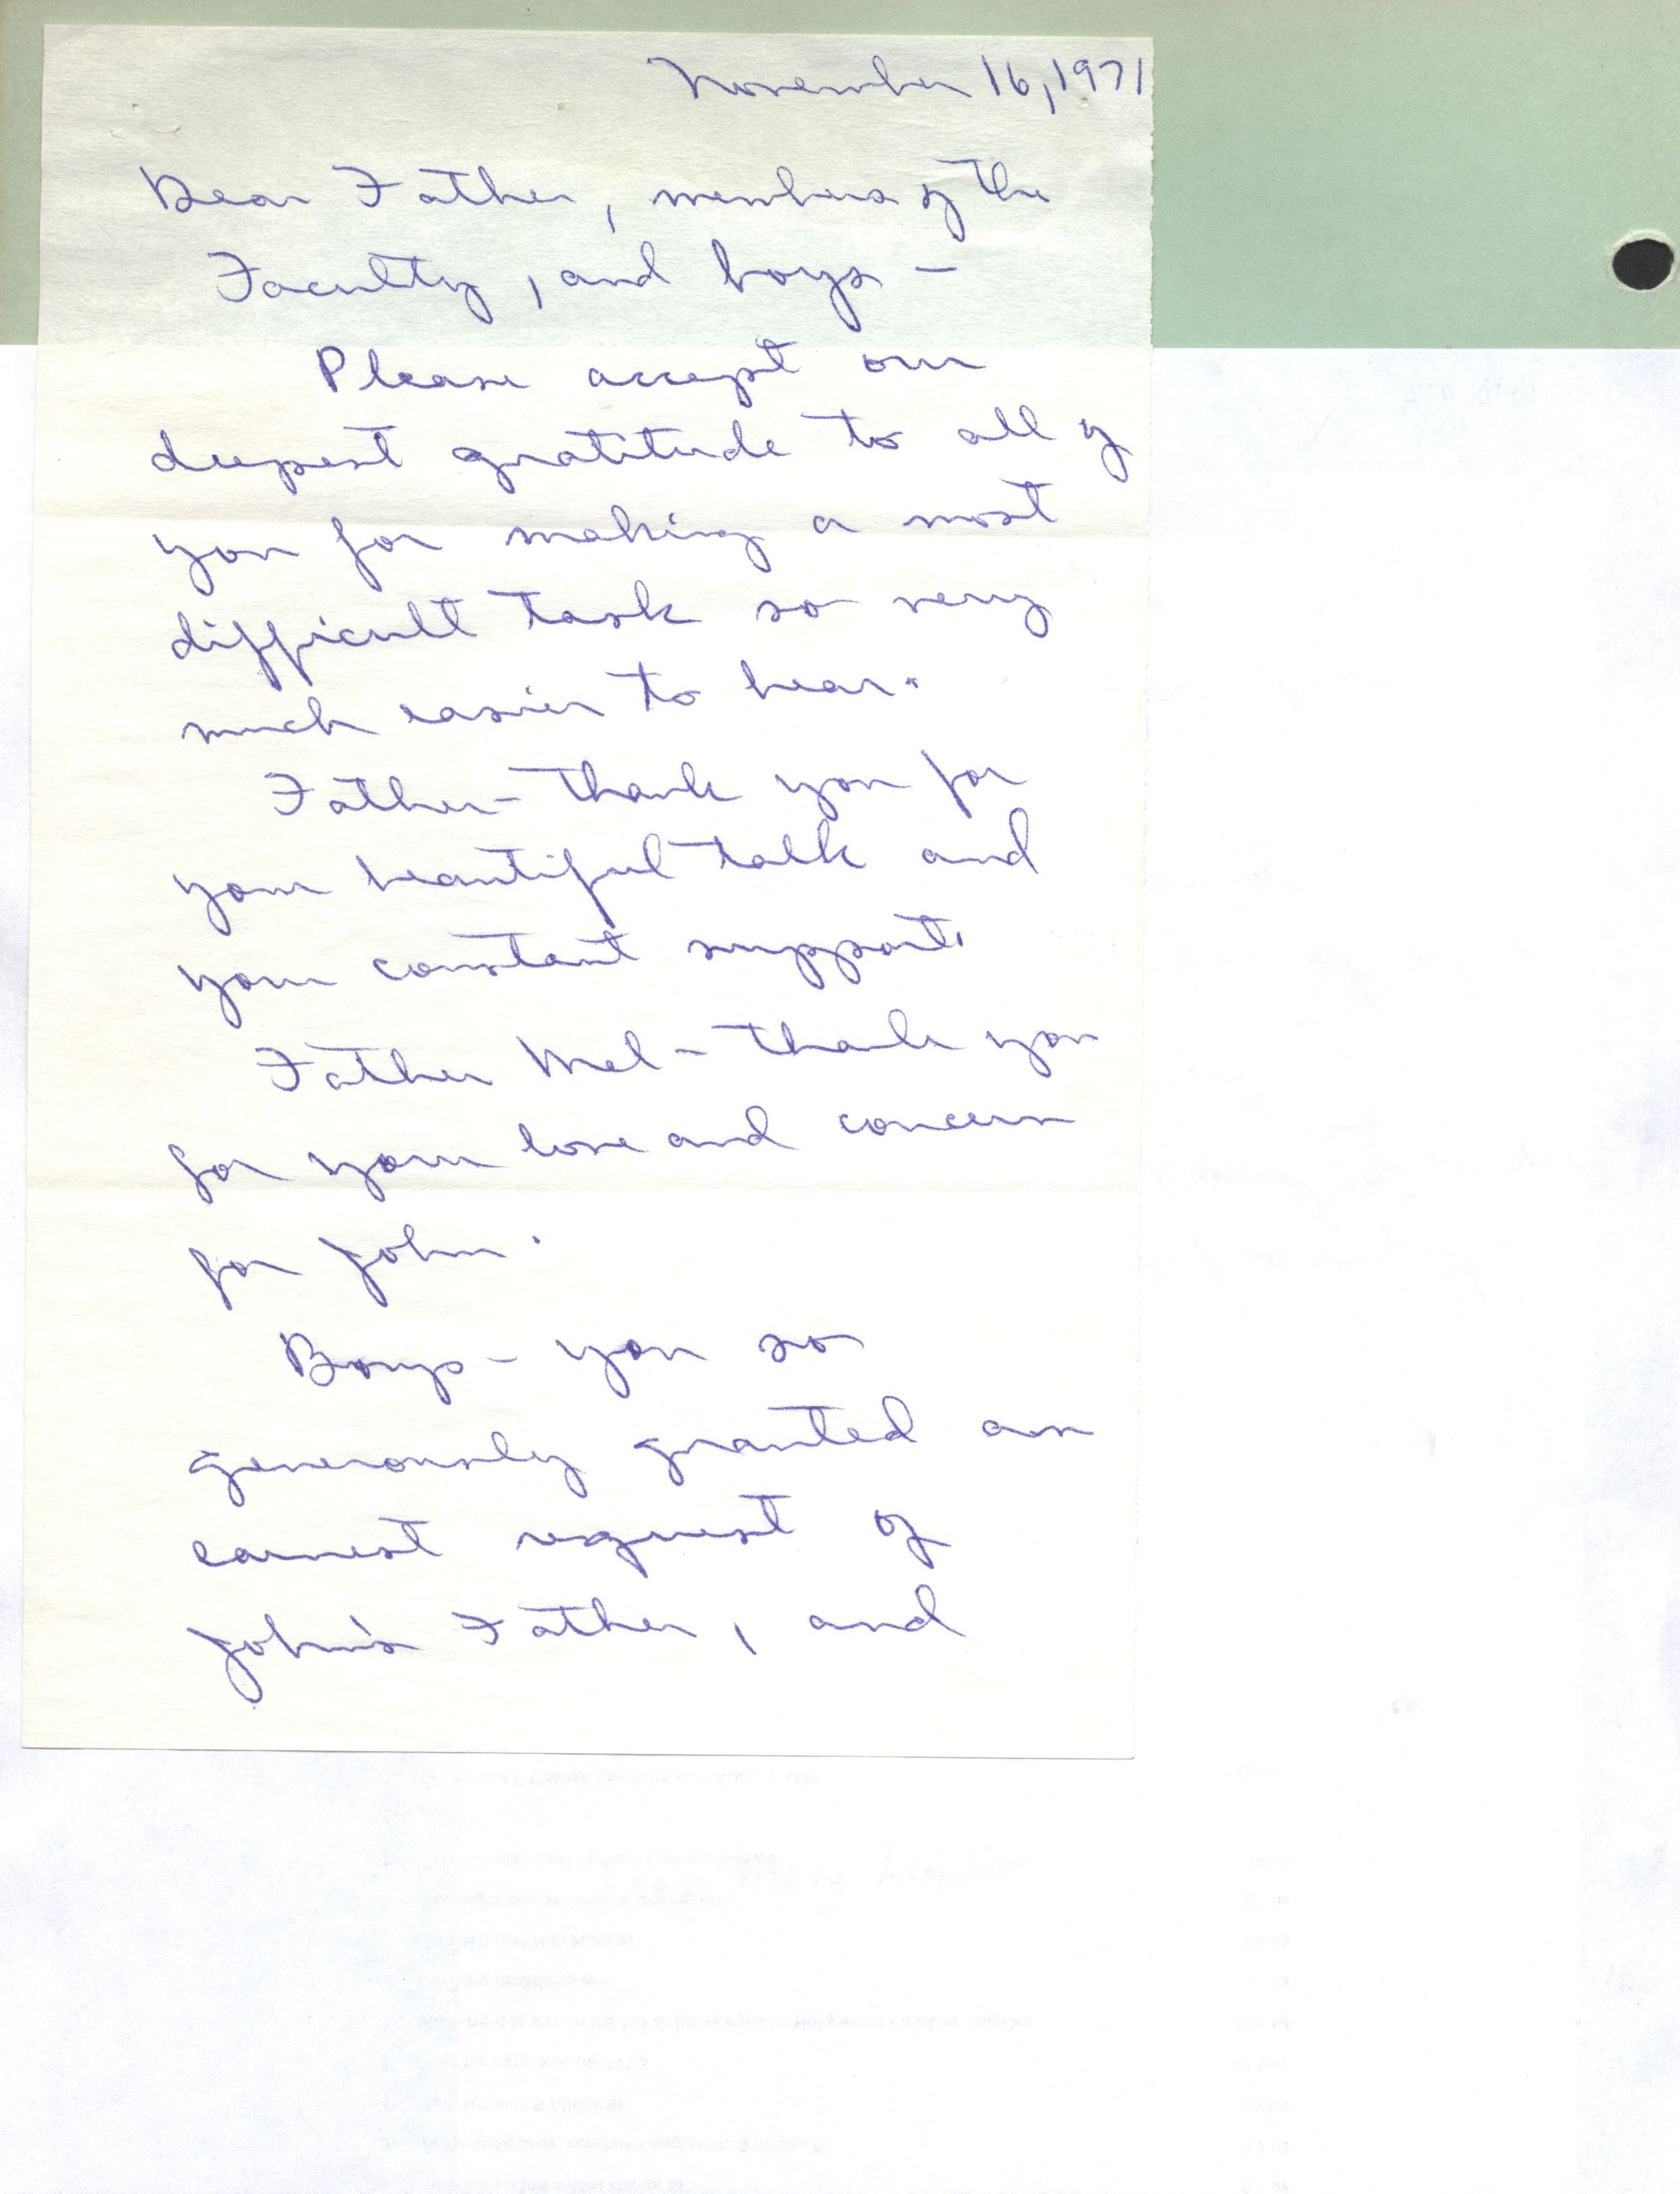 November 16, 1971
Dear Father, members of the
Faculty, and boys -
Please accept our
deepest gratitude to all of
you for making a most
difficult task so very
much easier to bear.
Father - thank you for
your beautiful talk and
your constant support.
Father Mel - thank you
for your love and concern
for John.
Boys - you so
generously granted an
earnest request of
John's Father, and